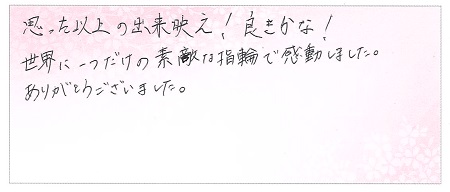 思った以上の出来映え！良きかな！
世界に一つだけの素敵な指輪で感動しました。
ありがとうございました。